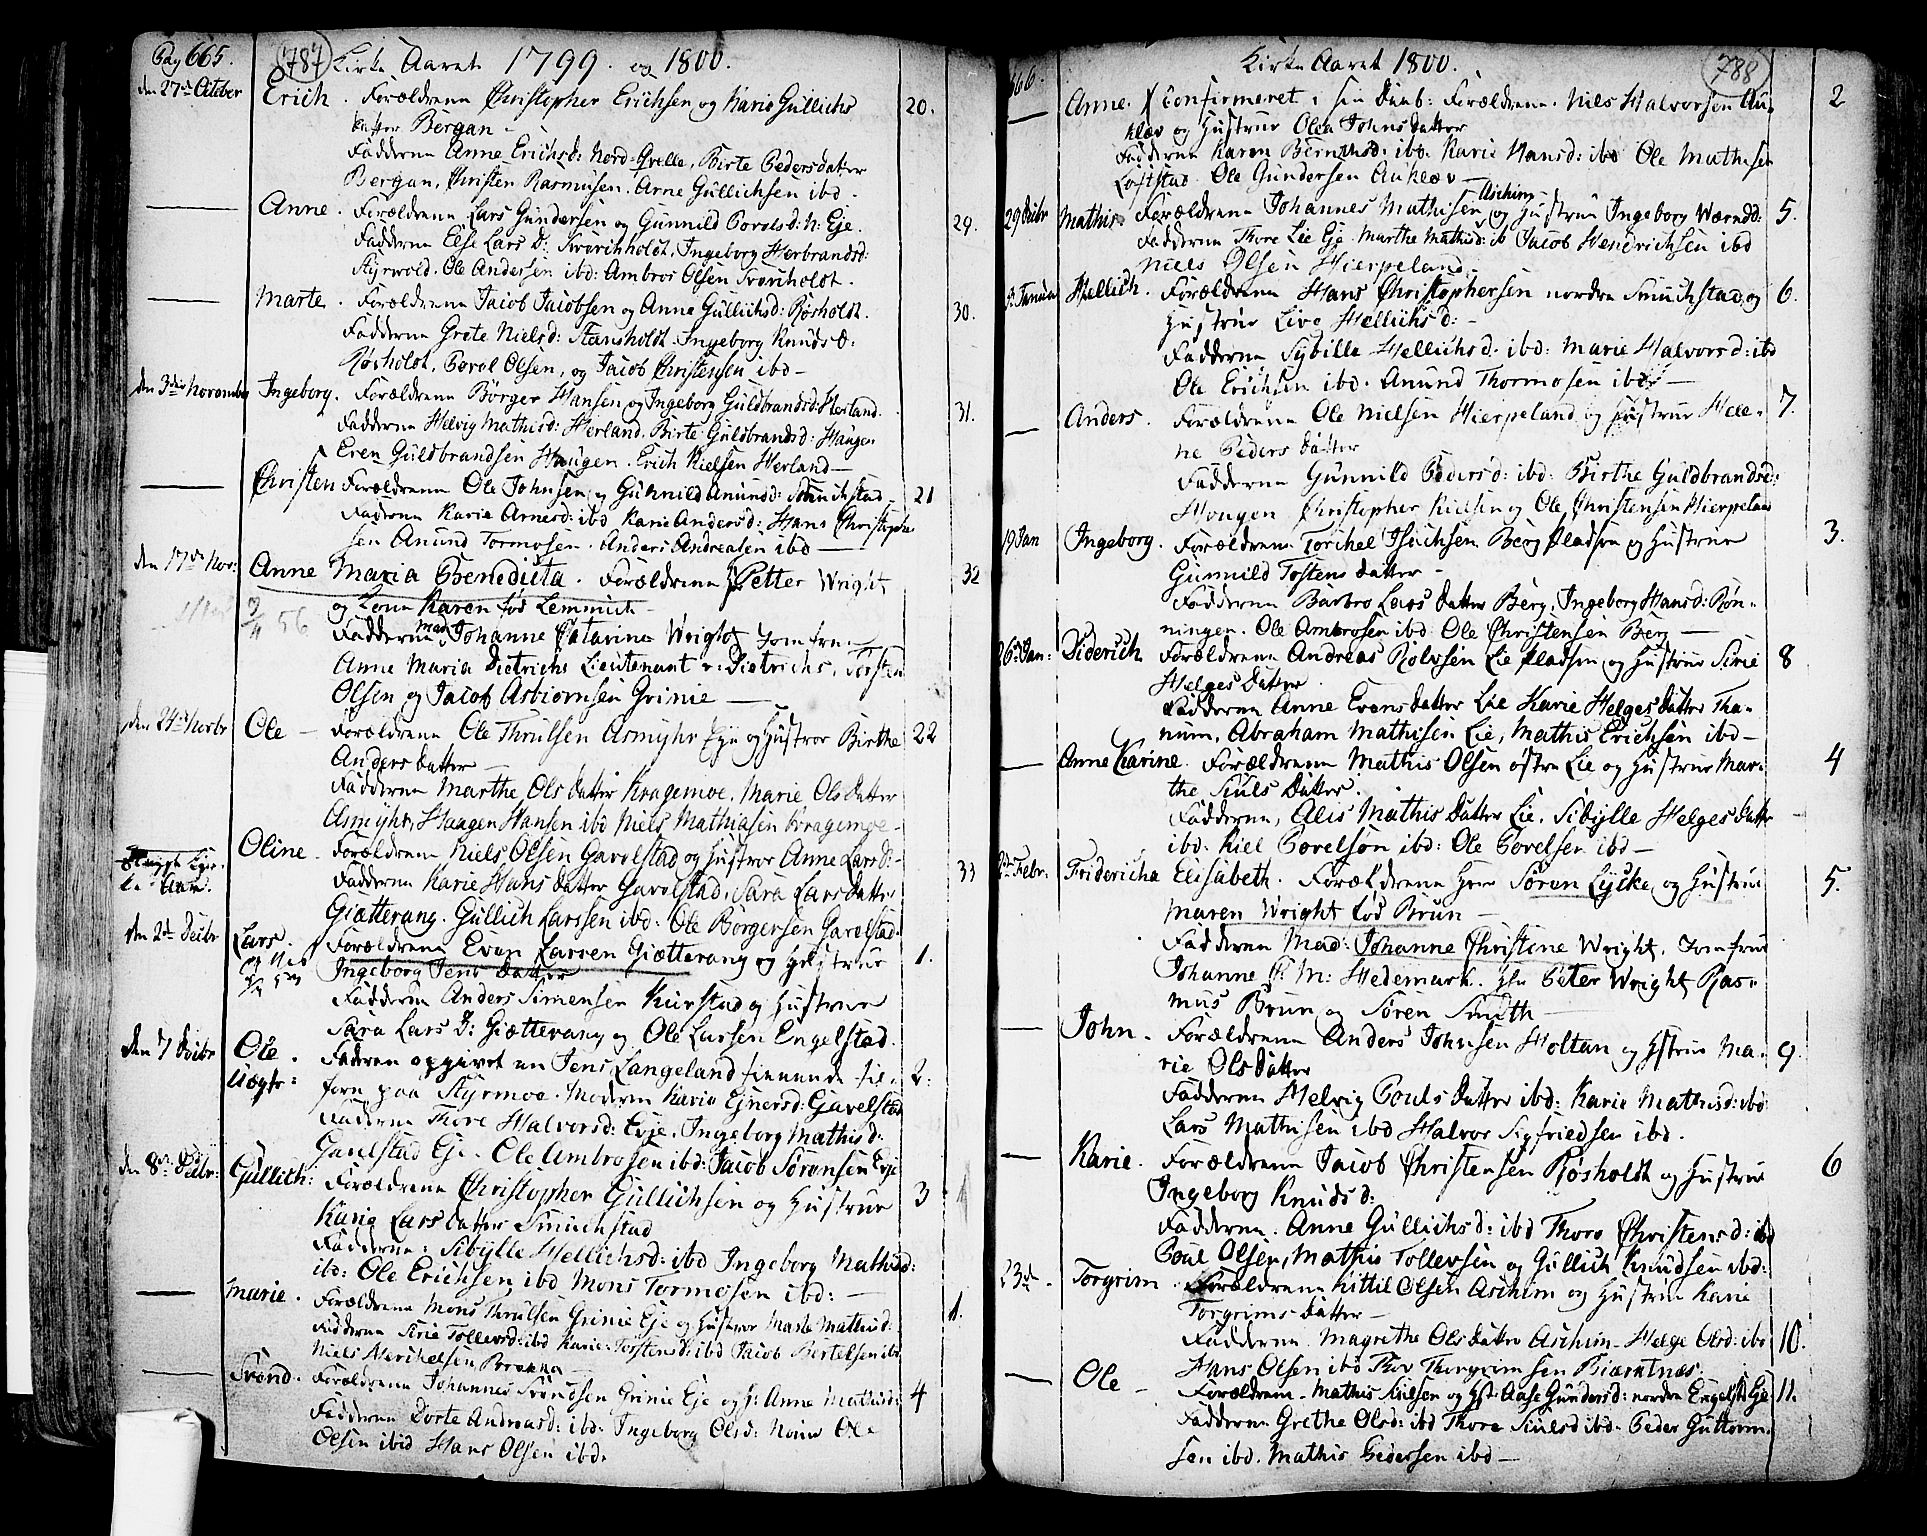 Pag 665. 787 Kirke Aaret 1799. og 1800.
den 27de October Erich. Forældrene Christopher Erichsen og Karie Gullichs 20.
datter Bergan -
Fadderne Anne Erichsd: Nord-Qvelle, Birte Pedersdatter
Bergan, Christen Rasmusen. Arne Gullichsen ibd -
Anne. Forældrene Lars Gundersen og Gunnild Povelsd: N: Eje. 29.
Fadderne Else Lars D: Svarchholdt, Ingeborg Herbrandsd:
Styrvold. Ole Andersen ibd: Ambror Olsen Svaricholdt.
Marte. Forældrene Jacob Jacobsen og Anne Gullichsd: Røsholdt. 30.
Fadderne Grete Nielsd: Stansholdt. Ingeborg Knuds D:
Røsholdt, Povel Olsen, og Jacob Christensen ibd -
den 3die November Ingeborg. Forældrene Børger Hansen og Ingeborg Guldbrandsd: Herland. 31.
Fadderne Helvig Mathisd: Herland. Birte Guldbrandsd: Haugen
Even Guldbrandsen Haugen. Erich Nielsen Herland -
Christen Forældrene Ole Johnsen og Gunnild Anundsd: Smuchstad 21
Fadderne Karie Arnesd: ibd Karie Andersd: Hans Christopher
sen Anund Tormosen. Anders Andreasen ibd -
den 17de Nov: Anne Maria Benedicta. Forældrene Petter Wright 32
og Kone Karen fød Lemmich -
Fadderne Mad. Johanne Catarine Wright Jomfru
Anne Maria Dietrichs Lieutenant v: Dietrichs, Torsten
Olsen og Jacob Asbiørnsen Grinie -
den 24de Novbr Ole - Forældrene Ole Thrulsen Asmyhr Eje og Hustrue Birthe 22
Anders datter -
Fadderne Marthe Ols datter Kragemoe, Marie Ols datter
Asmyhr, Haagen Hansen ibd Niels Mathiasen Kragemoe -
Oline. Forældrene Niels Olsen Gavelstad og Hustrue Anne Larsd: - 33
Fadderne Karie Hans datter Gavelstad, Sara Lars datter
Giætterang. Gullich Larssen ibd. Ole Børgersen Gavelstad.
den 2de Decbr Lars. Forældrene Even Larsen Giætterang og Hustrue 1.
Ingeborg Jens datter
Fadderne Anders Simensen Kierstad og Hustrue
Sara Lars D: Giætterang og Ole Larsen Engelstad.
Den 7 Decbr Ole. Faderen opgivet en Jens Langeland tienende til- 2.
Uægte: forn paa Styrmoe. Moderen Karie Ejnersd: Gavelstad
Fadderne Thore Halvorsd: Evje, Ingeborg Mathisd:
Gavelstad Eje - Ole Ambrosen ibd: Jacob Sørensen Evje
den 8de Decbr: Gullich: Forældrene Christopher Gullichsen og Hustrue 3
Karie Lars datter Smuchstad
Fadderne: Sibylle Hellichsd: ibd Ingeborg Mathisd:
ibd: Ole Erichsen ibd Mons Tormosen ibd: -
Marie. Forældrene Mons Thrulsen Grinie Eje og Hustrue Marte Mathisd: 1.
Fadderne Sirie Tollevsd: ibd Karie Torstensd: ibd Jacob Bertelsen ibd
Niels Merichelsen
Svend. Forældrene Johannes Svendsen Grinie Eje og H: Anne Mathisd: 4
Fadderne Dorte Andreasd: ibd. Ingeborg Olsd: Ole
Olsen ibid Hans Olsen ibd.
666. Kirke Aaret 1800. 788
Anne. Confirmeret i sin Daab: Forældrene. Niels Halvorsen Au- 2
klev og Hustrue Olea Johns datter
Fadderne Karen Berntsd: ibd. Karie Hansd: ibd Ole Mathisen
Loftstad. Ole Gundersen Auklev -
29 Decbr Mathis. Forældrene Johannes Mathisen Aschim og Hustrue Ingeborg Wærnsd: 5.
Fadderne Thore Lie Eje. Marthe Mathisd: ib Jacob Hendrichsen ibd
Niels Olsen Hierpeland.
Januar Hellich. Forældrene Hans Christophersen nordre Smuchstad, og 6.
Hustrue Live Hellichsd: -
Fadderne Sybille Hellichsd. ibd: Marie Halvorsd: ibd
Ole Erichsen ibd. Anund Thormosen ibd -
Anders. Forældrene Ole Nielsen Hierpeland og Hustrue Hele- 7.
ne Peders datter
Fadderne Gunnild Pedersd: ibd: Birthe Guldbrandsd:
Hougen Christopher Nielsen og Ole Christensen Hierpeland
19 Jan Ingeborg. Forældrene Torchel Isachsen Berg Pladsen og Hustrue 3.
Gunnild Tostens datter -
Fadderne Barbro Lars datter Berg, Ingeborg Hansd: Røn-
ningen. Ole Ambrosen ibd Ole Christensen Berg -
26de Jan: Diderich Forældrene Andreas Rolvsen Lie Pladsen og Hustrue Sirie 8
Helges datter
Fadderne Anne Evens datter Lie Karie Helges datter Tha-
num, Abraham Mathisen Lie, Mathis Erichsen ibd -
Anne Karine. Forældrene Mathis Olsen østre Lie og Hustrue Mar- 4
the Siuls datter.
Fadderne, Alis Mathis datter Lie, Sibylle Helges datter
ibd. Kiel Povelsøn ibd: Ole Povelsen ibd -
2de Febr: Fridericha Elisabeth. Forældrene Herr Søren Lycke, og Hustrue 5.
Maren Wright fød Brun -
Fadderne Mad: Johanne Christene Wright, Jomfrue
Johanne F. M: Hedemark. Hr Peter Wright Ras-
mus Brun og Søren Smith -
John. Forældrene Anders Johnsen Holtan og Hstrue Ma- 9.
rie Ols datter
Fadderne Helvig Pouls datter ibd: Karie Mathisd: ibd
Lars Mathisen ibd Halvor Sigfriedsen ibd.
Karie. Forældrene Jacob Christensen Røsholdt og Hustrue 6
Ingeborg Knudsd:
Fadderne. Anne Gullichsd: ibd Thore Christensd: ibd
Poul Olsen, Mathis Tollevsen og Gullich Knudsen ibd:
23de Torgrim Forældrene Kittil Olsen Aschim og Hustrue Karie
Torgrims datter -
Fadderne Magrethe Ols datter Aschim. Helge Olsd: ibd 10.
Hans Olsen ibd Thov Thorgrimsen Biærtnæs.
Ole - Forældrene - Mathis Siulsen og Hst: Aase Gundersd: nordre Engelstd Eje 11.
Fadderne Grethe Olsd: ibd Thore Siulsd ibd. Peder Guttorm-
sen ibd. Mathis Pedersen ibd -